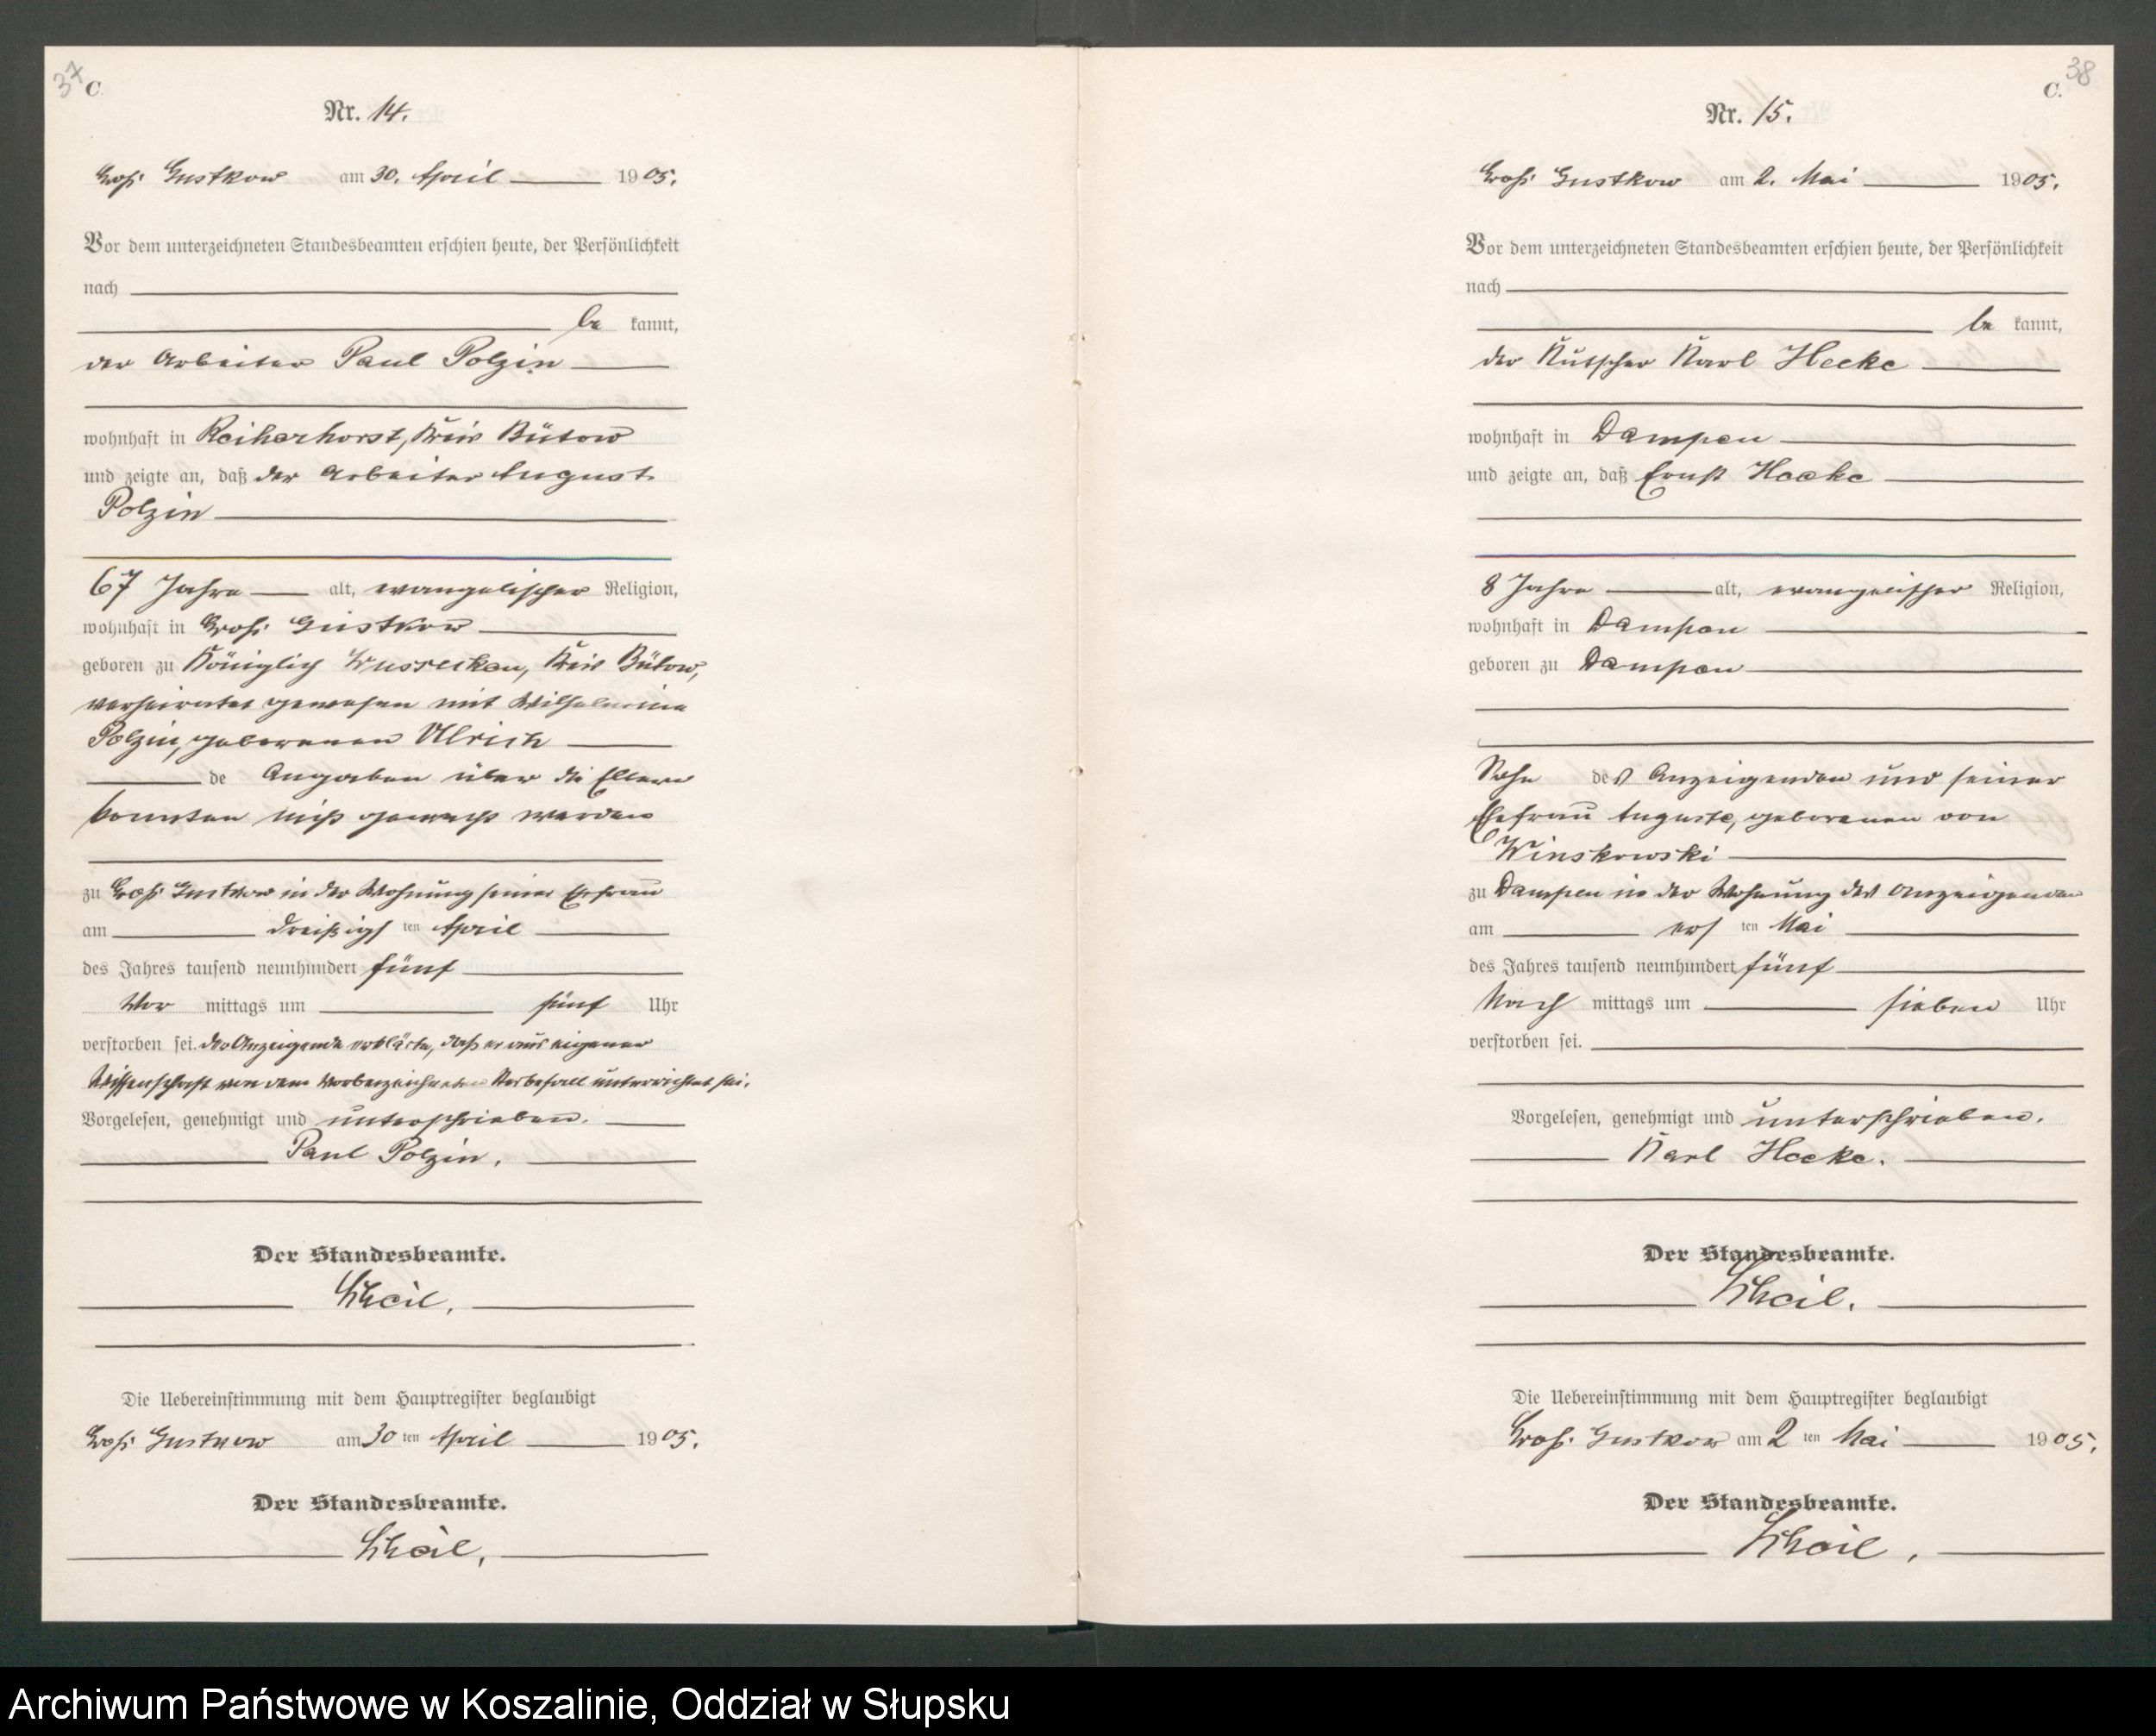 37
C.
Nr. 14.
Groß Gustkow am 30. April 1905.
Vor dem unterzeichneten Standesbeamten erschien heute, der Persönlichkeit
nach
be kannt,
der Arbeiter Paul Polzin
wohnhaft in Reiherhorst, Kreis Bütow
und zeigte an, daß der Arbeiter August
Polzin
67 Jahre alt, evangelischer Religion,
wohnhaft in Groß Gustkow
geboren zu Königlich Wusseken, Kreis Bütow,
verheiratet gewesen mit Wilhelmine
Polzin, geborenen Ulrich
de Angaben über die Eltern
konnten nicht gemacht werden
zu Groß Gustkow in der Wohnung seiner Ehefrau
am dreißigs ten April
des Jahres tausend neunhundert fünf
Vor mittags um fünf Uhr
verstorben sei. der Anzeigende erklärte, daß er aus eigener
Wissenschaft von dem vorbezeichneten Sterbefall unterrichtet sei.
Vorgelesen, genehmigt und unterschrieben.
Paul Polzin.
Der Standesbeamte.
Die Uebereinstimmung mit dem Hauptregister beglaubigt
Groß Gustkow am 30 ten April 1905.
Der Standesbeamte.
38
C.
Nr. 15.
Groß Gustkow am 2. Mai 1905.
Vor dem unterzeichneten Standesbeamten erschien heute, der Persönlichkeit
nach
be kannt,
der Kutscher Karl Heeke
wohnhaft in Dampen
und zeigte an, daß Ernst Heeke
8 Jahre alt, evangelischer Religion,
wohnhaft in Dampen
geboren zu Dampen
Sohn des Anzeigenden und seiner
Ehefrau Auguste, geborenen von
Winskowski
zu Dampen in der Wohnung des Anzeigenden
am ers ten Mai
des Jahres tausend neunhundert fünf
Nach mittags um sieben Uhr
verstorben sei.
Vorgelesen, genehmigt und unterschrieben.
Karl Heeke.
Der Standesbeamte.
Die Uebereinstimmung mit dem Hauptregister beglaubigt
Groß Gustkow am 2 ten Mai 1905.
Der Standesbeamte.
Archiwum Państwowe w Koszalinie, Oddział w Słupsku